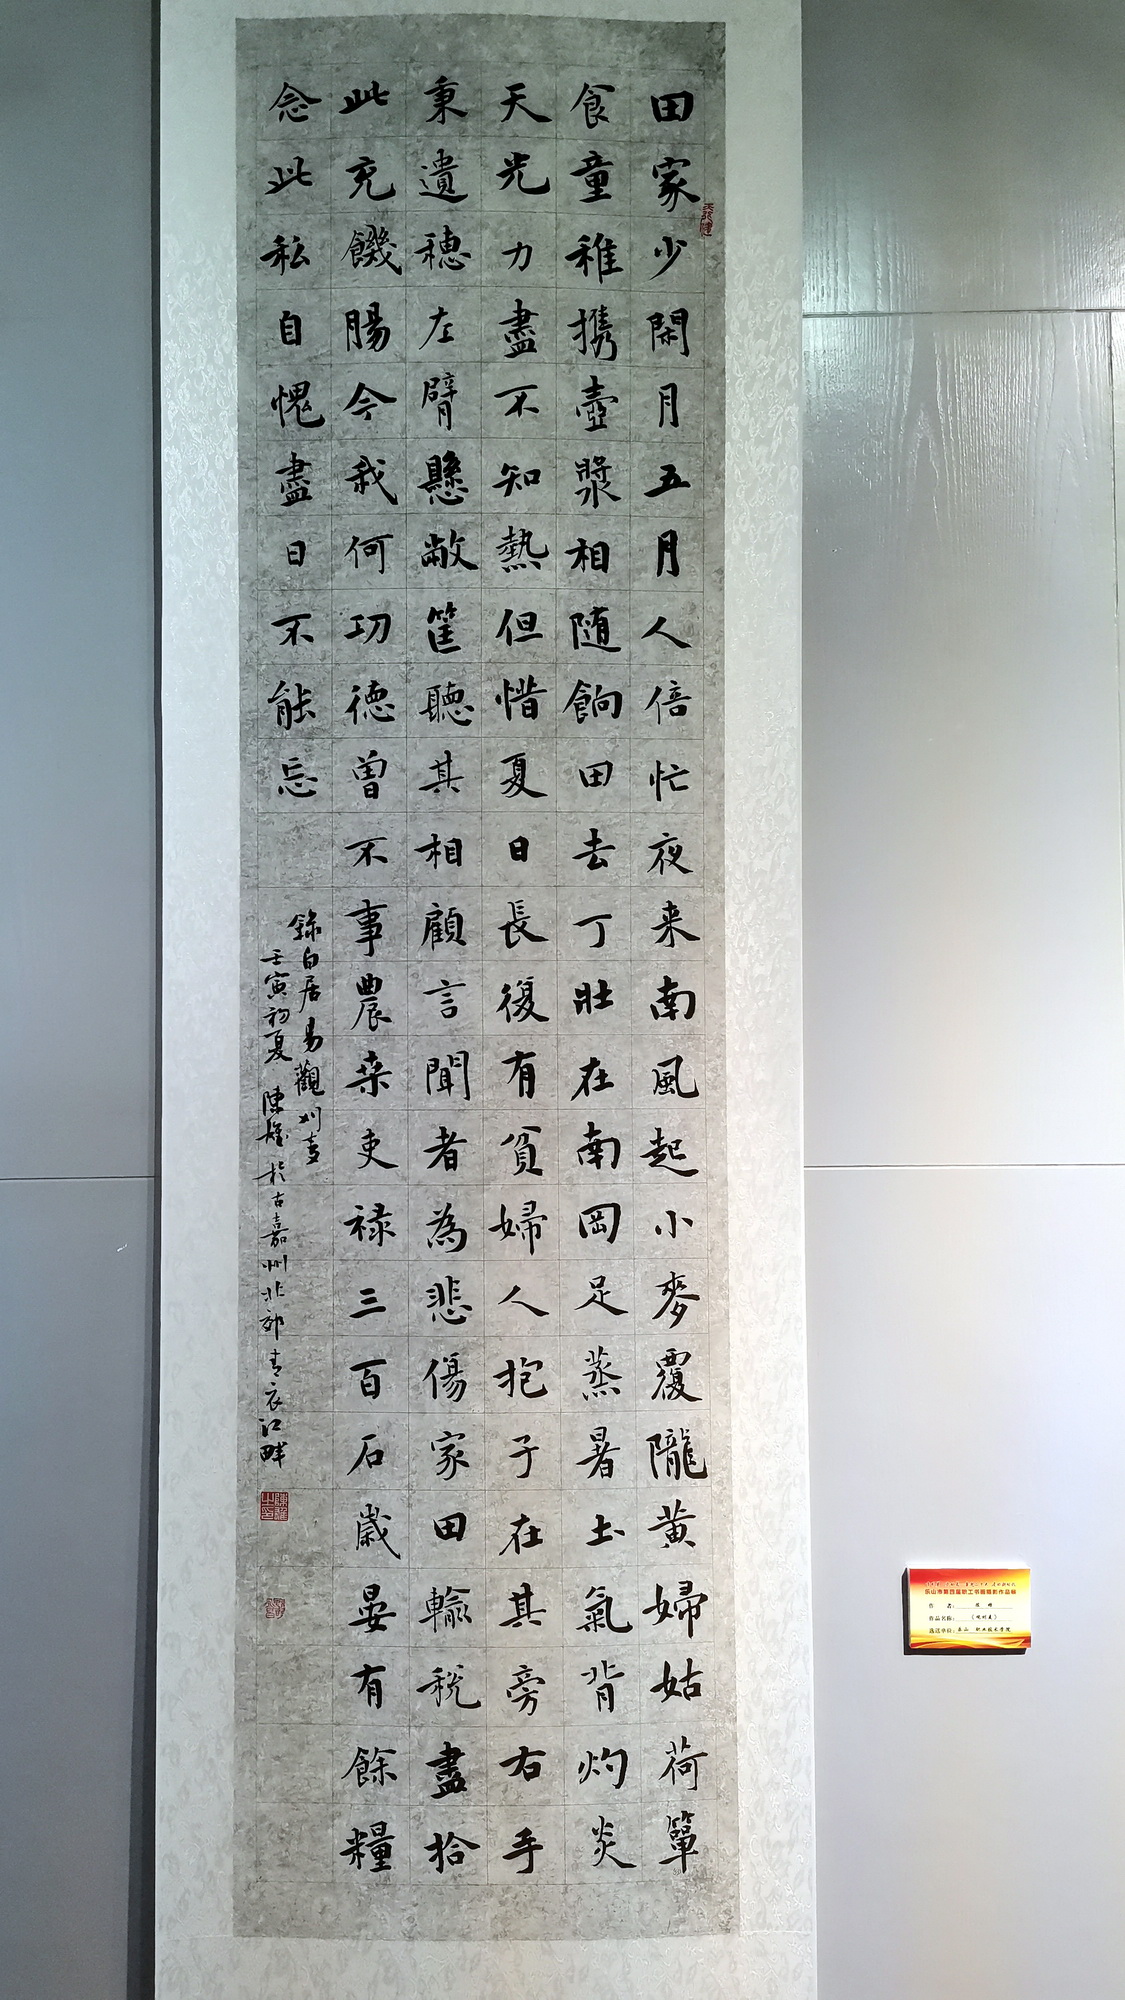 田家少閑月五月人倍忙夜来南風起小麥覆隴黄婦姑荷簞
食童稚携壺漿相随餉田去丁壯在南岡足蒸暑土氣背灼炎
天光力盡不知熱但惜夏日長復有貧婦人抱子在其旁右手
秉遺穗左臂懸敝筐聽其相顧言聞者為悲傷家田輸税盡拾
此充饑腸今我何功德曽不事農桒吏禄三百石歲晏有餘糧
念此私自愧盡日不能忘
錄白居易觀刈麦
壬寅初夏 陳雄於古嘉州北郊青衣江畔
乐山市第四届职工书画摄影作品展
作 者:
作品名称:《观刈麦》
选送单位:乐山 职业技术学院